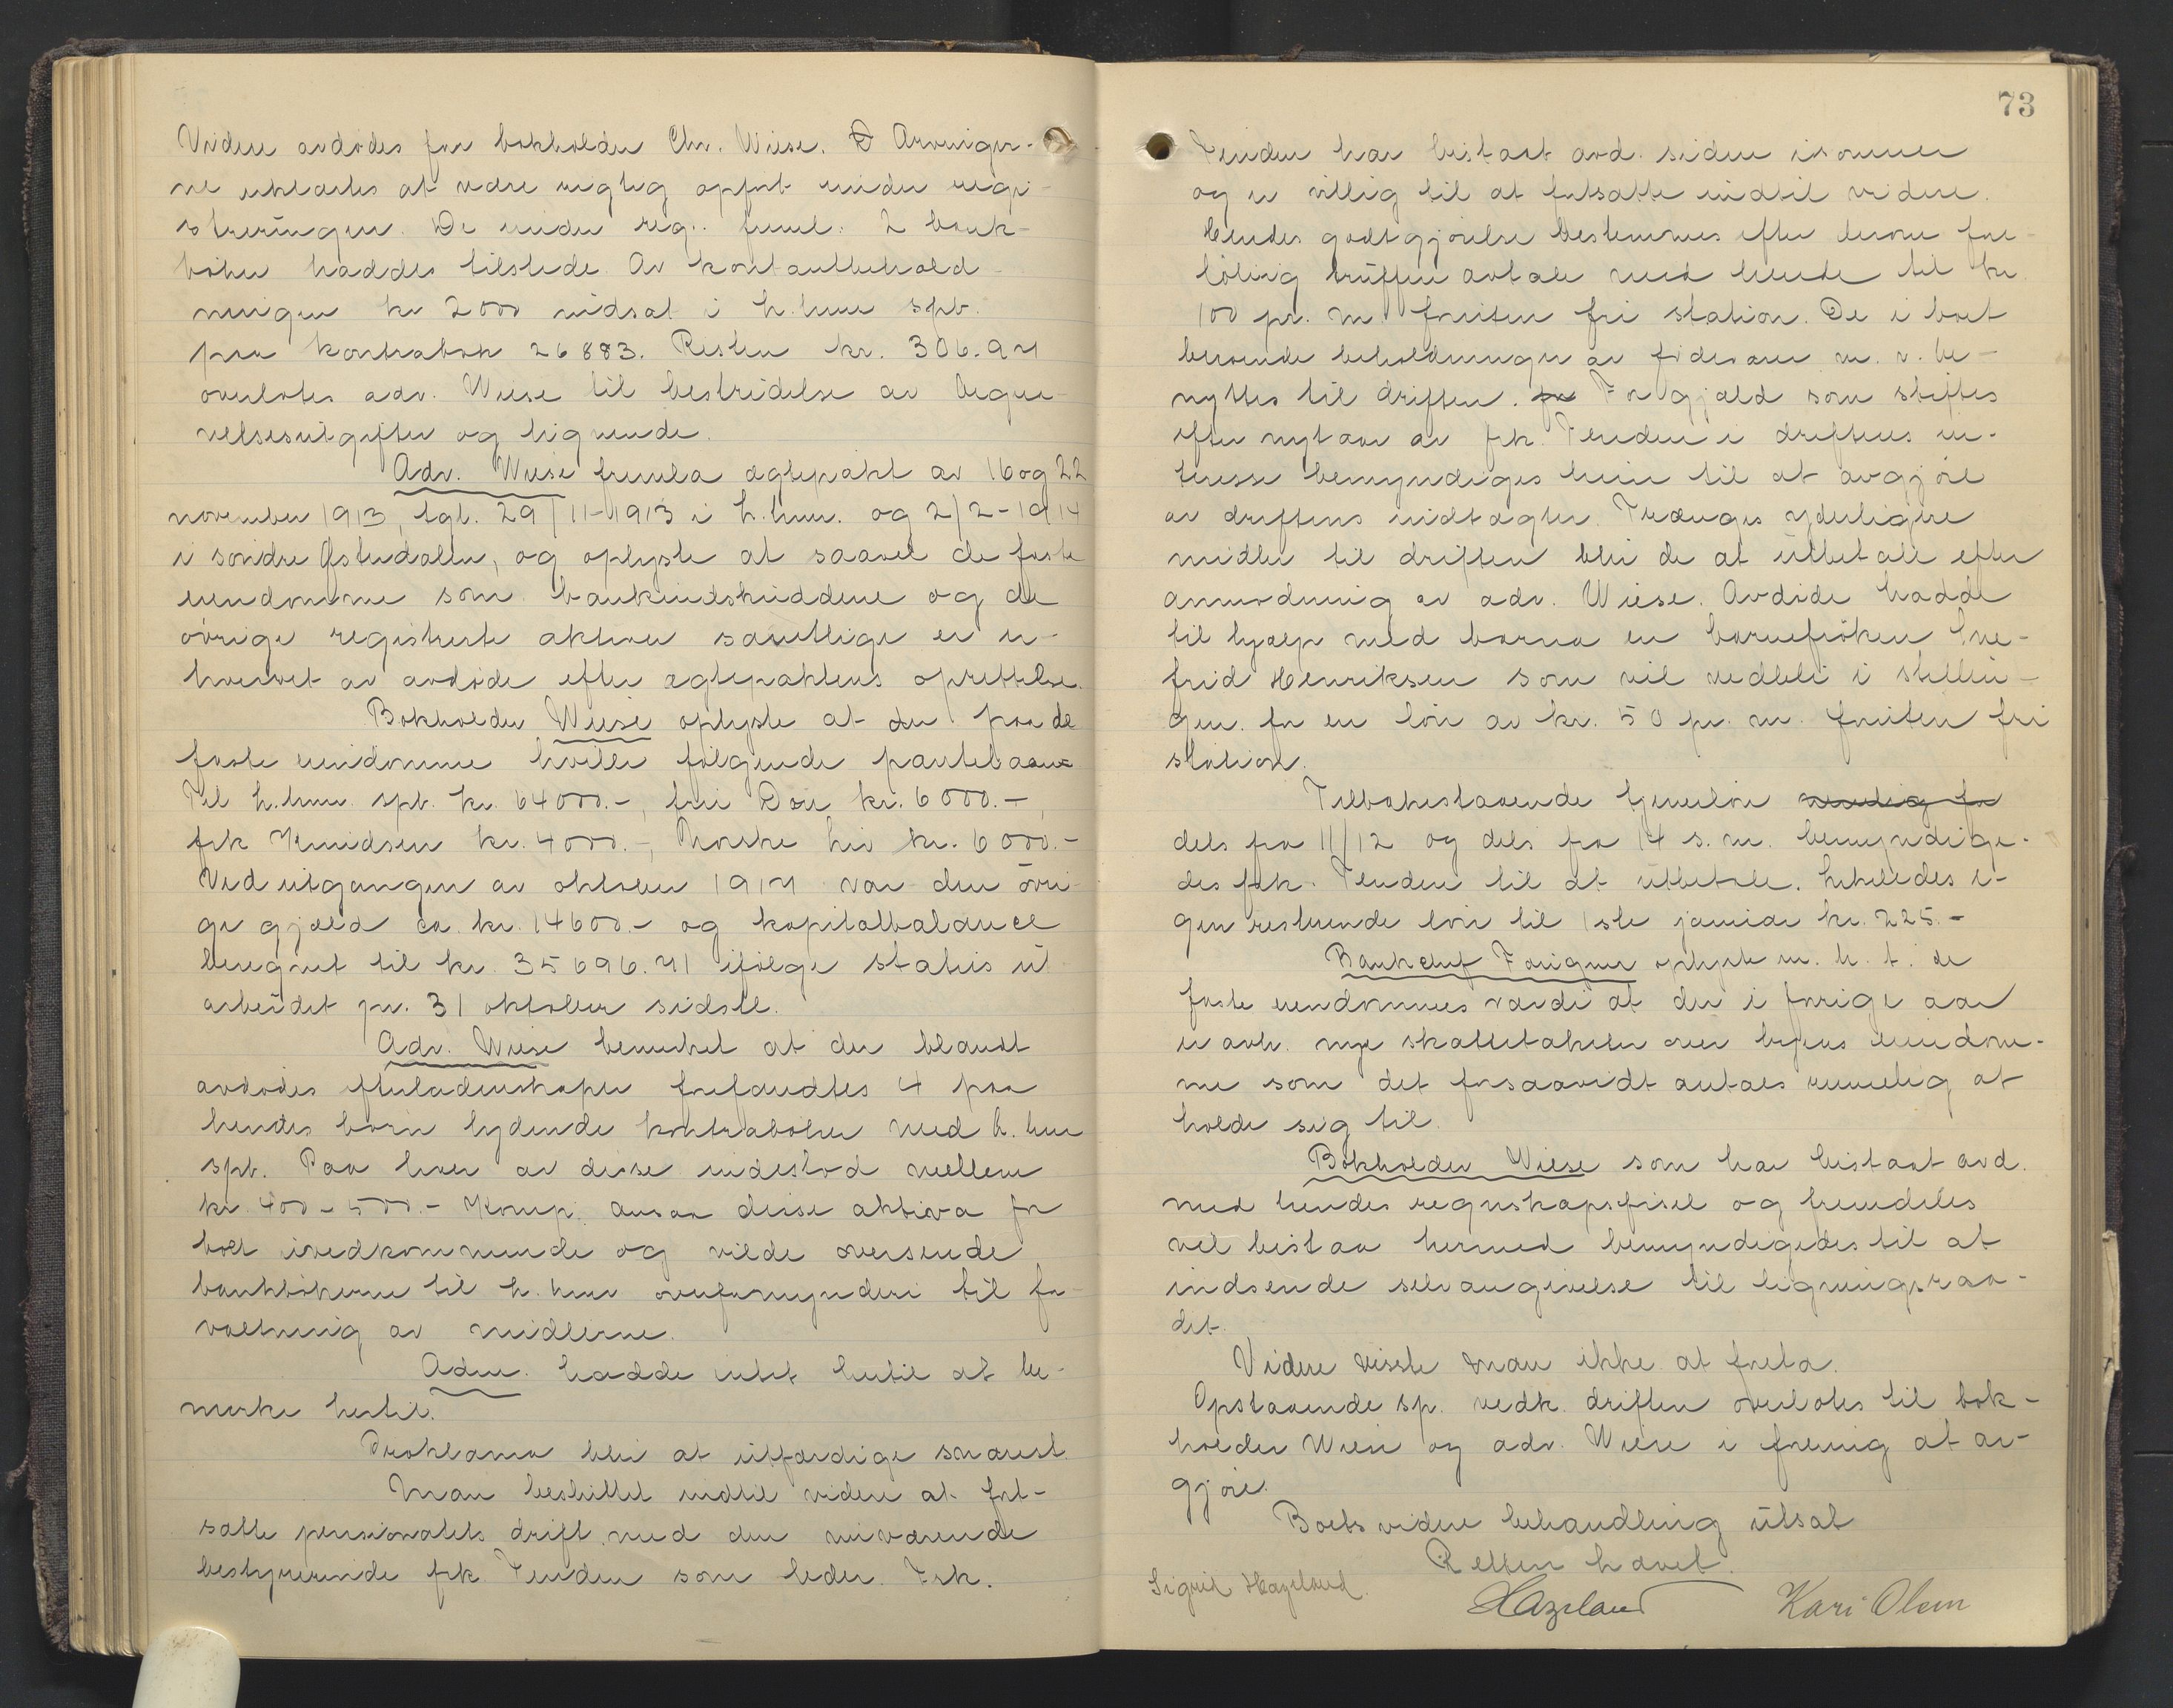 Videre avdødes far bokholder Chr. Wiese. Arvinger-
ne erklærtes at være rigtig opført under regi-
streringen. De under reg. freml. 2 bank-
bøker haddes tilstede. Av kontantbehold-
ningen kr 2000 indsat i h.hmr spb.
paa kontrabok 26883. Resten kr. 306.94
overlotes adv. Wiese til bestridelse av begra-
velsesutgifter og lignende.
Adv. Wiese fremla ægtepakt av 16 og 22
november 1913, tgl. 29/11-1913 i h.hmr. og 2/2-1914
i søndre Østerdalen, og oplyste at saavel de faste
eiendomme som bankindskuddene og de
øvrige registrerte aktiver samtlige er er-
hvervet av avdøde efter ægtepaktens oprettelse.
Bokholder Wiese oplyste at der paa de
faste eiendomme hviler følgende pantelaan
Til h.hmr. spb. kr. 64000.-, fru Dør kr. 6000.-,
frk Knudsen kr. 4000.-, Norske liv kr. 6000.-
Ved utgangen av oktober 1914 var den øvri-
ge gjæld ca. kr. 14600.- og kapitalbalance
beregnet til kr. 35696.41 ifølge status ut-
arbeidet pr. 31 oktober sidstl.
Adv. Wiese bemerket at der blandt
avdødes efterladenskaper forefandtes 4 paa
hendes børn lydende kontrabøker med h. hmr
spb. Paa hver av disse indestod mellem
kr. 400-500.- Komp. ansaa disse aktiva for
boet uvedkommende og vilde oversende
bankbøkerne til h. hmr overformynderi til for-
valtning av midlerne.
Adm. hadde intet hertil at be-
merke hertil.
Proklama blir at utfærdige snarest.
Man besluttet indtil videre at fort-
sætte pensionatets drift med den nuværende
bestyrerinde frk. Tenden som leder. Frk.
73
Tenden har bistaat avd. siden isommer
og er villig til at fortsætte indtil videre.
Hendes godtgjørelse bestemmes efter derom fore-
løbig truffen avtale med hende til kr
100 pr. m foruten fri station. De i boet
beroende beholdninger av fødevarer m. v. be-
nyttes til driften. For gjæld som stiftes
efter nytaar av frk. Tenden i driftens in-
teresse bemyndiges hun til at avgjøre
av driftens indtægter. Trænges yderligere
midler til driften blir de at utbetale efter
anmodning av adv. Wiese. Avdøde hadde
til hjælp med barna en barnefrøken Ine-
frid Henriksen som vil vedbli i stillin-
gen for en løn av kr. 50 pr. m. foruten fri
station.
Tilbakestaaende tjenerløn
dels fra 11/12 og dels fra 14 s. m. bemyndige-
des frk. Tenden til at utbetale. Likeledes e-
gen resterende løn til 1ste januar kr. 225.-
Bankchef Fougner oplyste m. h. t. de
faste eiendommes værdi at der i forrige aar
er avh. nye skattetakster over byens eiendom-
me som det forsaavidt antaes rimelig at
holde sig til.
Bokholder Wiese som har bistaat avd.
med hendes regnskapsførsel og fremdeles
vil bistaa hermed bemyndigedes til at
indsende selvangivelse til ligningsraa-
det.
Videre visste man ikke at foreta.
Opstaaende sp. vedk. driften overlotes til bok-
holder Wiese og adv. Wiese i forening at av-
gjøre.
Boets videre behandling utsat
Retten hævet.
Sigrid Hazeland.
Hazeland
Kari Olsen